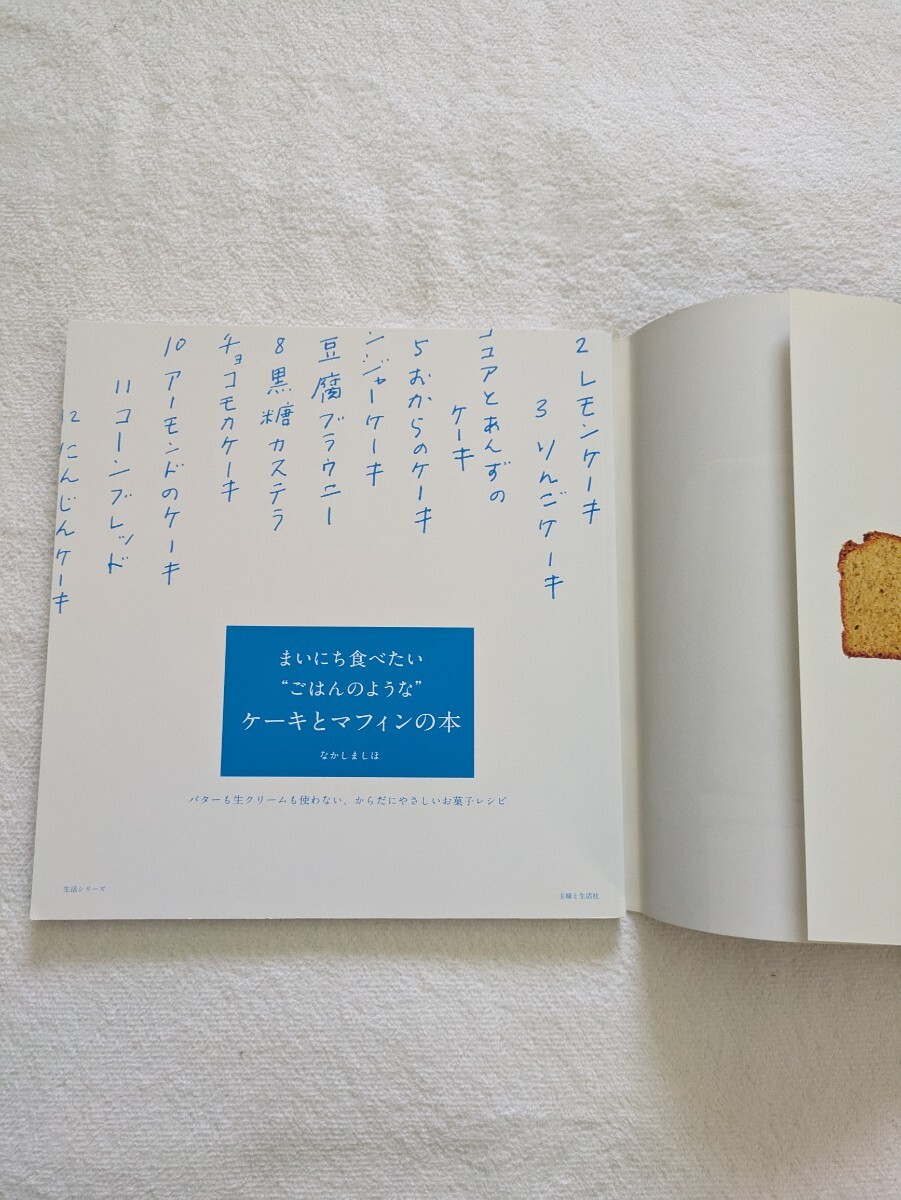 2 レモンケーキ
3 りんごケーキ
ココアとあんずの
ケーキ
5 おからのケーキ
ンジャーケーキ
豆腐ブラウニー
8 黒糖カステラ
チョコモカケーキ
10 アーモンドのケーキ
11 コーンブレッド
12 にんじんケーキ
まいにち食べたい
“ごはんのような”
ケーキとマフィンの本
なかしましほ
バターも生クリームも使わない、からだにやさしいお菓子レシピ
生活シリーズ
主婦と生活社